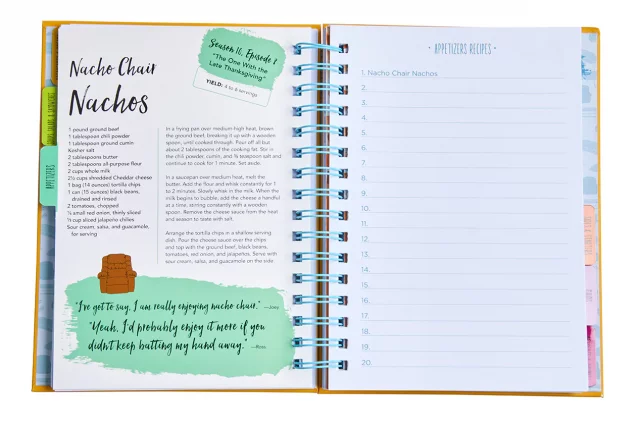 Nacho Chair
Nachos
Season 10, Episode 8
"The One With the
Late Thanksgiving"
YIELD: 4 to 6 servings
1 pound ground beef
1 tablespoon chili powder
1 tablespoon ground cumin
Kosher salt
2 tablespoons butter
2 tablespoons all-purpose flour
2 cups whole milk
2½ cups shredded Cheddar cheese
1 bag (14 ounces) tortilla chips
1 can (15 ounces) black beans,
drained and rinsed
2 tomatoes, chopped
small red onion, thinly sliced
cup sliced jalapeño chilies
Sour cream, salsa, and guacamole,
for serving
In a frying pan over medium-high heat, brown
the ground beef, breaking it up with a wooden
spoon, until cooked through. Pour off all but
about 2 tablespoons of the cooking fat. Stir in
the chili powder, cumin, and ¾ teaspoon salt and
continue to cook for 1 minute. Set aside.
In a saucepan over medium heat, melt the
butter. Add the flour and whisk constantly for 1
to 2 minutes. Slowly whisk in the milk. When the
milk begins to bubble, add the cheese a handful
at a time, stirring constantly with a wooden
spoon. Remove the cheese sauce from the heat
and season to taste with salt.
Arrange the tortilla chips in a shallow serving
dish. Pour the cheese sauce over the chips
and top with the ground beef, black beans,
tomatoes, red onion, and jalapeños. Serve with
sour cream, salsa, and guacamole on the side.
"I've got to say, I am really enjoying nacho chair." —Joey
"Yeah, I'd probably enjoy it more if you
didn't keep batting my hand away." —Ross
APPETIZERS
· APPETIZERS RECIPES ·
1. Nacho Chair Nachos
2.
3.
4.
5.
6.
7.
8.
9.
10.
11.
12.
13.
14.
15.
16.
17.
18.
19.
20.